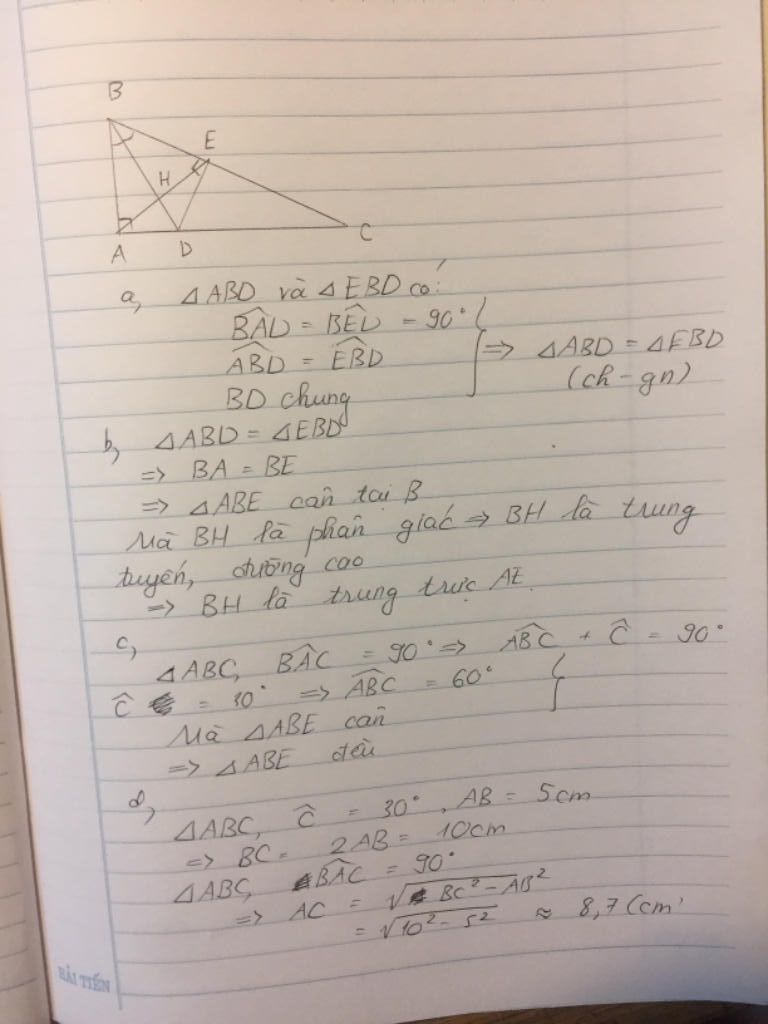 B
E
H
A D C
a, △ABD và △EBD có:
BAD̂ = BÊD = 90°
ABD̂ = EBD̂ ⇒ △ABD = △EBD
BD chung (ch - gn)
b, △ABD = △EBD
=> BA = BE
=> △ABE cân tại B
Mà BH là phân giác => BH là trung
tuyến, đường cao
=> BH là trung trực AE.
c,
△ABC, BÂC = 90° => AB̂C + Ĉ = 90°
Ĉ = 30° => AB̂C = 60°
Mà △ABE cân
=> △ABE đều
d,
△ABC, Ĉ = 30°, AB = 5cm
=> BC = 2AB = 10cm
△ABC, BÂC = 90°
=> AC = √(BC² - AB²)
= √(10² - 5²) ≈ 8,7 (cm)
BẢI TIẾN